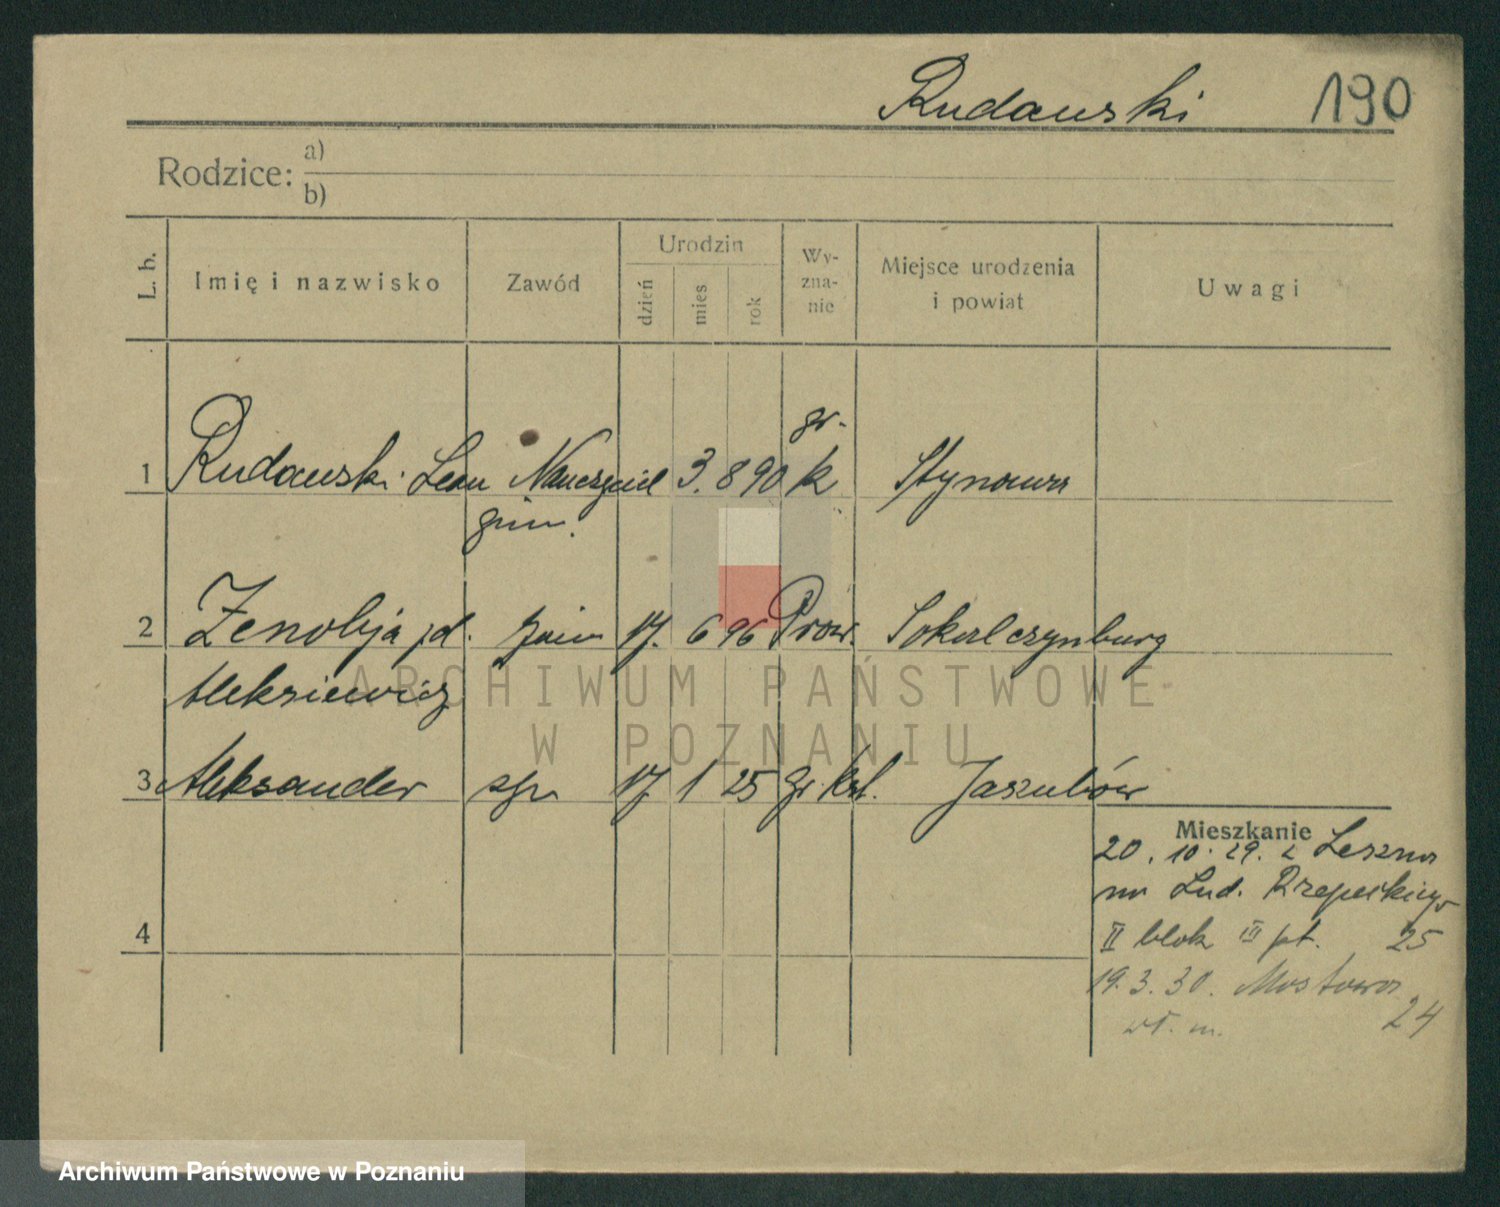 Rudawski 190
Rodzice: a)
b)
L. b. Imię i nazwisko Zawód Urodzin dzień mies rok Wy-zna-nie Miejsce urodzenia i powiat Uwagi
gr.
1 Rudawski Leon Nauczyciel 3. 8 90 k Stynawa
gim.
2 Zenobja zd. 17. 6 96 Praw.
Aleksiewicz
3 Aleksander syn 17 1 25 gr. kat.
Mieszkanie
20. 10. 29. z Leszna
na Lud. Rzepeckiego
II blok III pt. 25
19. 3. 30. Mostowa
wł. m. 24
4
ARCHIWUM PAŃSTWOWE
W POZNANIU
Archiwum Państwowe w Poznaniu